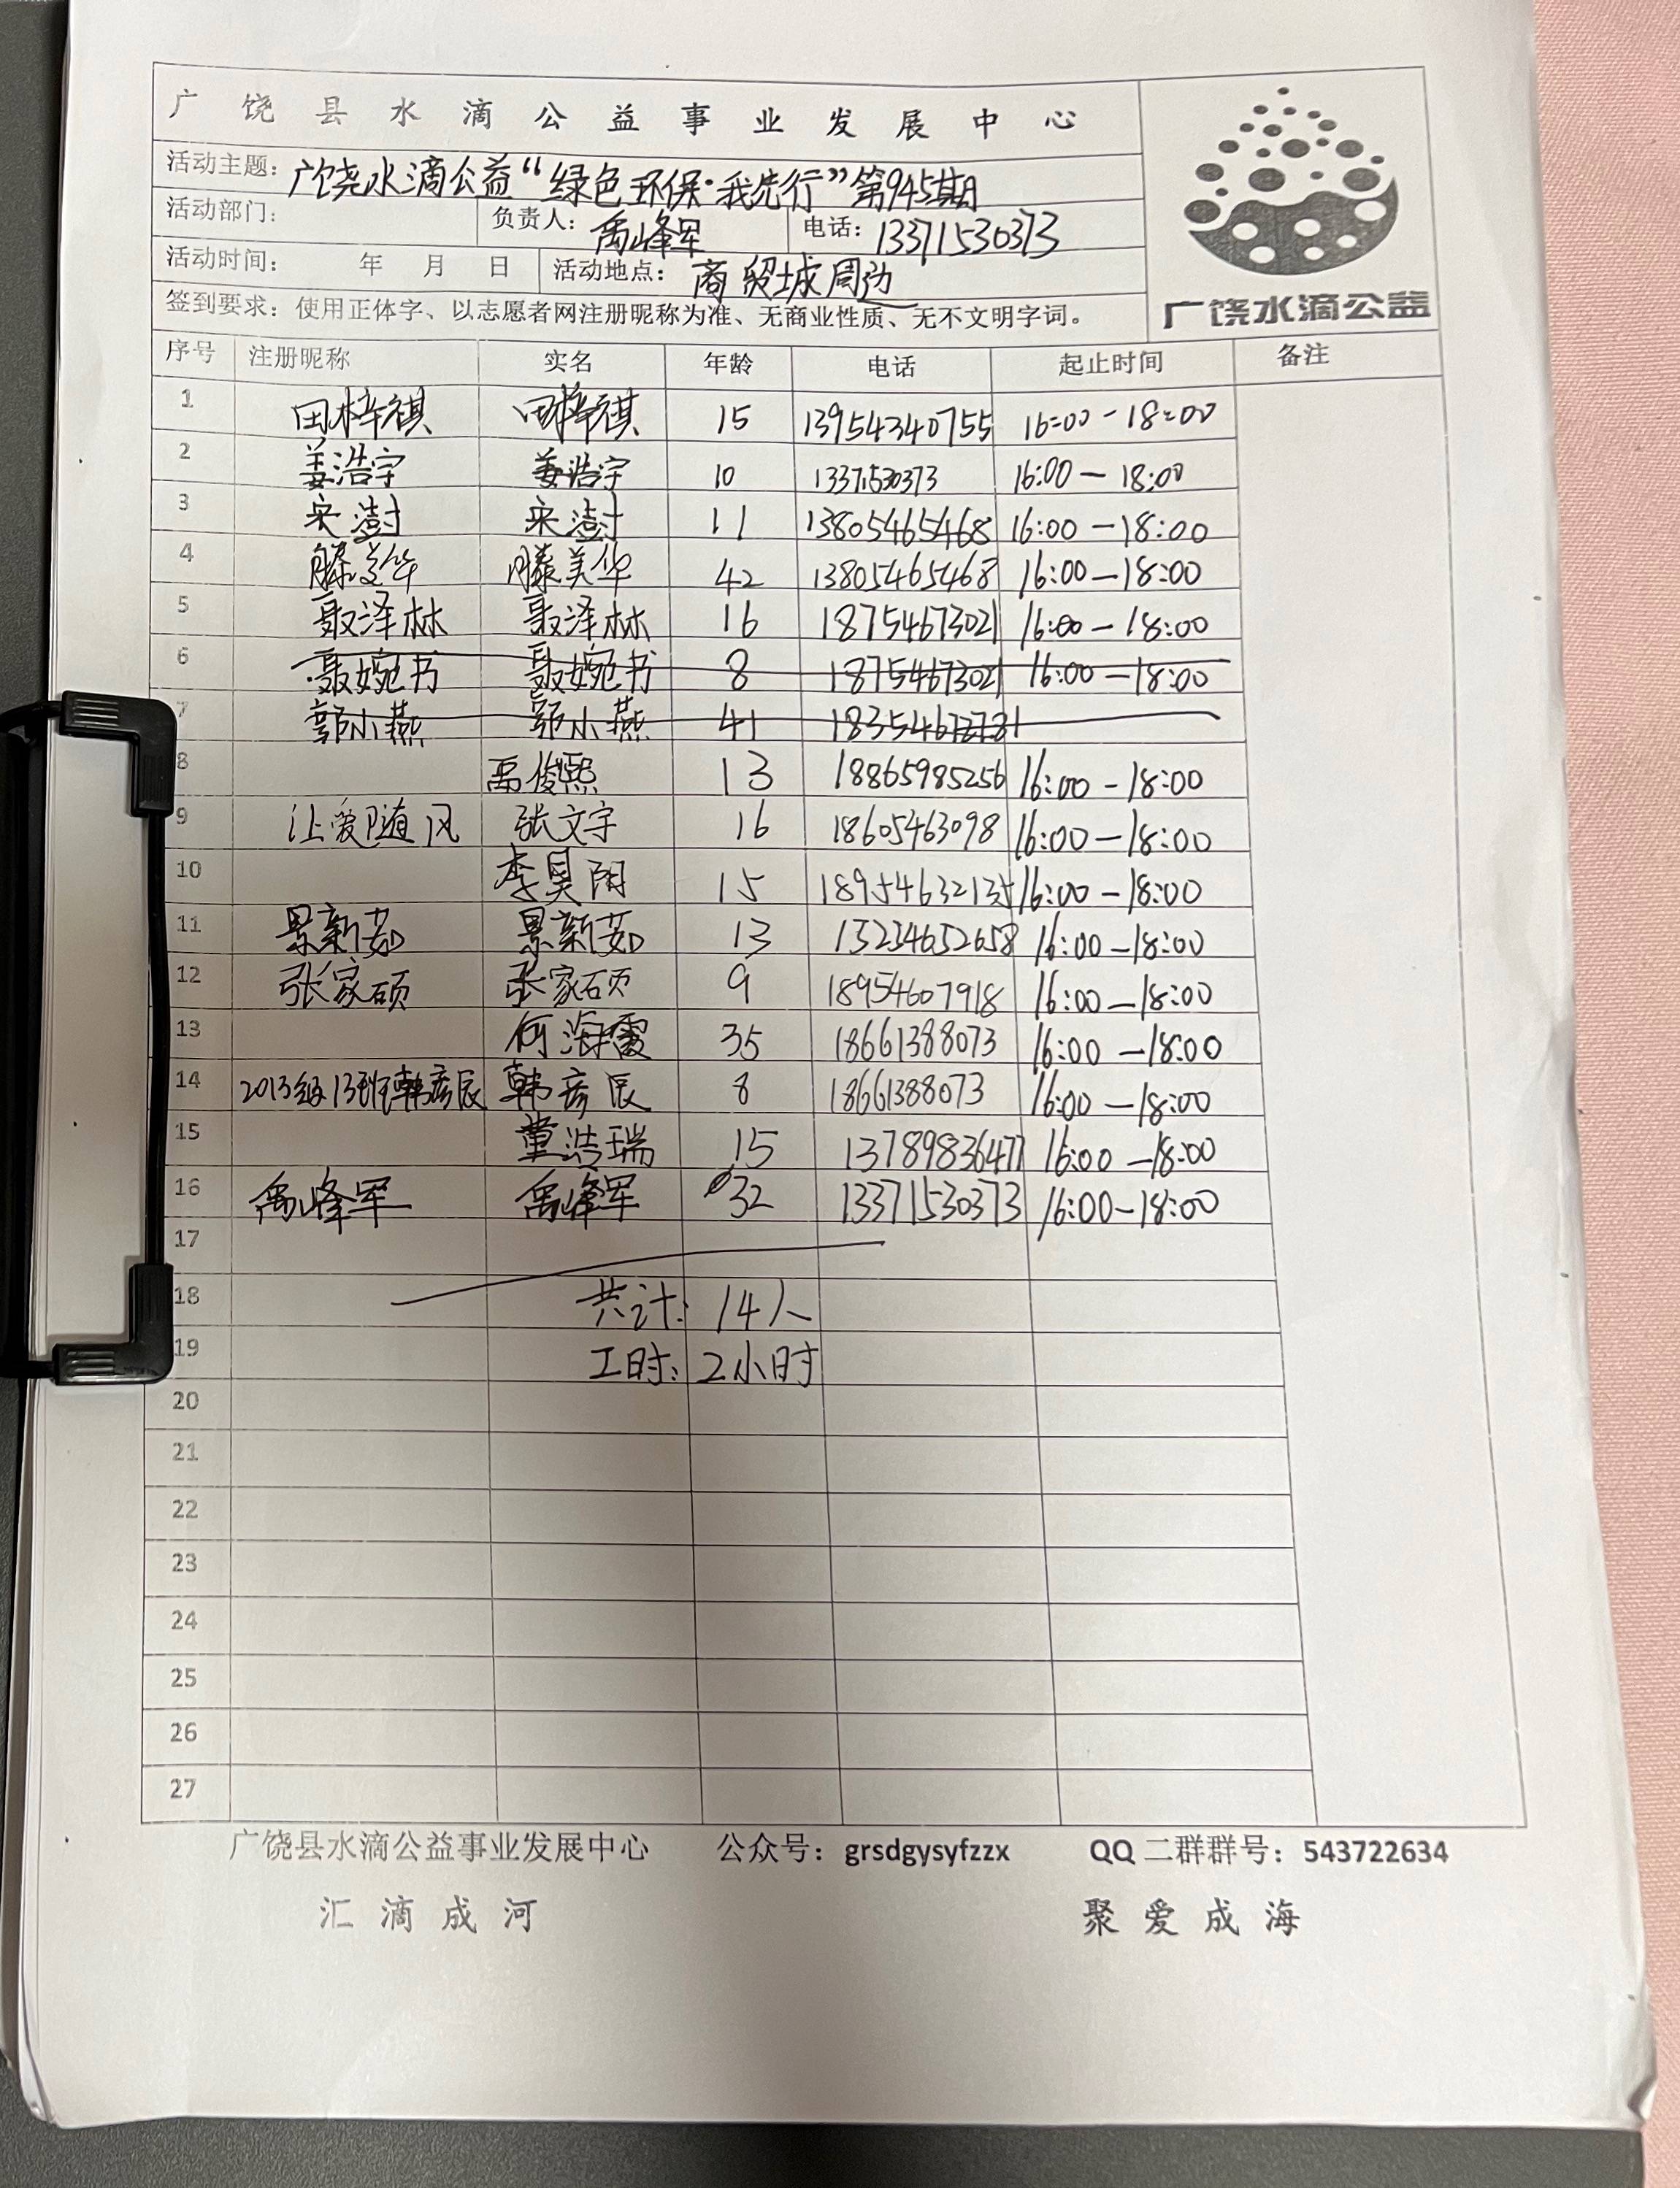 广饶县水滴公益事业发展中心
活动主题：广饶水滴公益“绿色环保·我先行”第945期
活动部门： 负责人：禹峰军 电话：13371530373
活动时间： 年 月 日 活动地点：商贸城周边
签到要求：使用正体字、以志愿者网注册昵称为准、无商业性质、无不文明字词。
广饶水滴公益
序号 注册昵称 实名 年龄 电话 起止时间 备注
1 田梓祺 田梓祺 15 13954340755 16:00-18:00
2 姜浩宇 姜浩宇 10 1337530373 16:00-18:00
3 宋澍 宋澍 11 13805465468 16:00-18:00
4 滕美华 滕美华 42 13805465468 16:00-18:00
5 聂泽林 聂泽林 16 18754673021 16:00-18:00
6 聂婉书 聂婉书 8 18754673021 16:00-18:00
7 郭小燕 郭小燕 41 18354672731
8 禹俊熙 13 18865985256 16:00-18:00
9 让爱随风 张文宇 16 18605463098 16:00-18:00
10 李昊阳 15 16:00-18:00
11 景新茹 景新茹 13 15234652658 16:00-18:00
12 张家硕 张家硕 9 18954607918 16:00-18:00
13 何海霞 35 18661388073 16:00-18:00
14 2013级13班韩彦辰 韩彦辰 8 18661388073 16:00-18:00
15 董浩瑞 15 13789836477 16:00-18:00
16 禹峰军 禹峰军 32 13371530373 16:00-18:00
17
18 共计：14人
19 工时：2小时
20
21
22
23
24
25
26
27
广饶县水滴公益事业发展中心 公众号：grsdgysyfzzx QQ二群群号：543722634
汇滴成河 聚爱成海